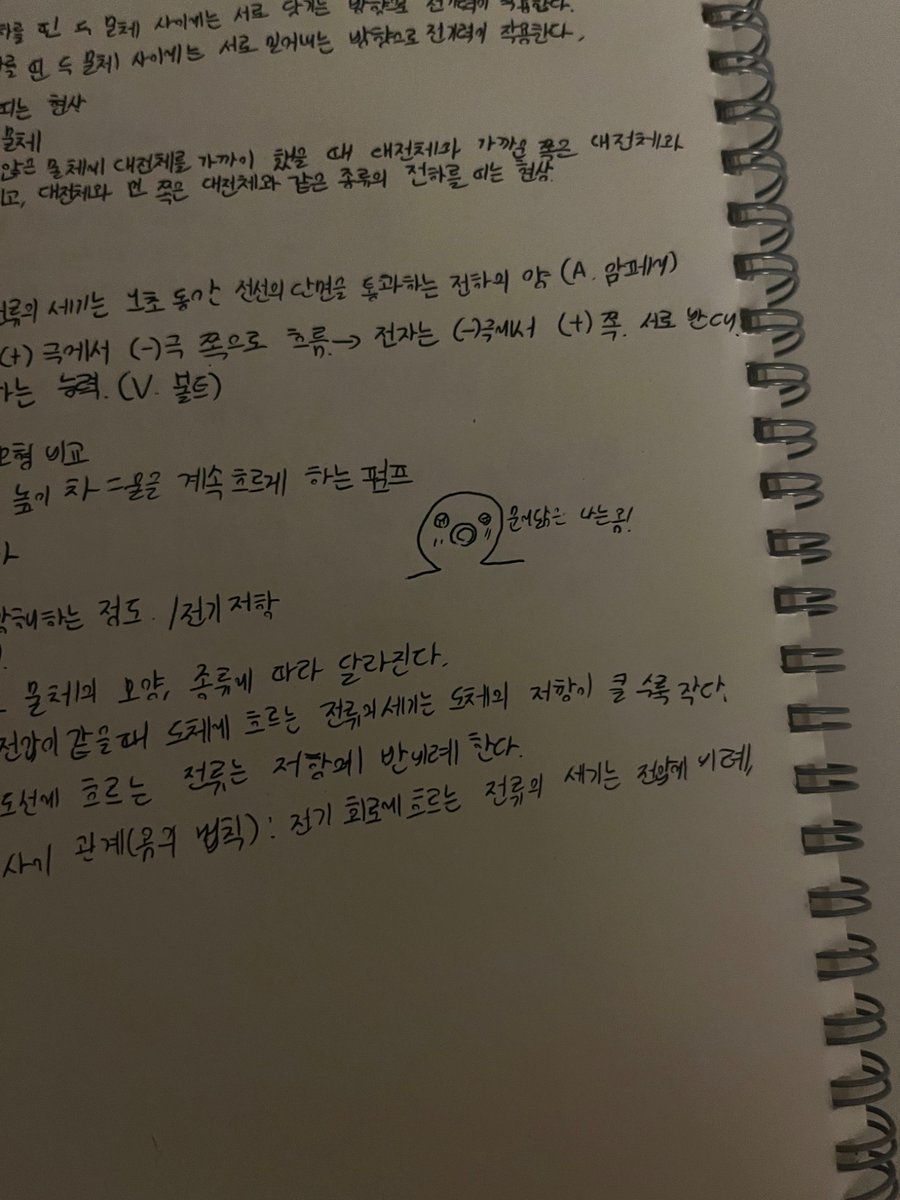 띤 두 물체 사이에는 서로 당기는 방향으로 전기력이 작용한다.
띤 두 물체 사이에는 서로 밀어내는 방향으로 전기력이 작용한다.
띠는 현상
물체
않은 물체에 대전체를 가까이 했을 때 대전체와 가까운 쪽은 대전체와
대전체와 먼 쪽은 대전체와 같은 종류의 전하를 띠는 현상.
전류의 세기는 1초 동안 전선의 단면을 통과하는 전하의 양 (A. 암페어)
(+) 극에서 (-)극 쪽으로 흐름. → 전자는 (-)극에서 (+) 쪽. 서로 반대.
하는 능력. (V. 볼트)
모형 비교
높이 차 = 물을 계속 흐르게 하는 펌프
문어닮은 나는곰!
방해하는 정도. /전기 저항
물체의 모양, 종류에 따라 달라진다.
전압이 같을때 도체에 흐르는 전류의세기는 도체의 저항이 클 수록 작다.
도선에 흐르는 전류는 저항에 반비례 한다.
사이 관계(옴의 법칙) : 전기 회로에흐르는 전류의 세기는 전압에 비례,